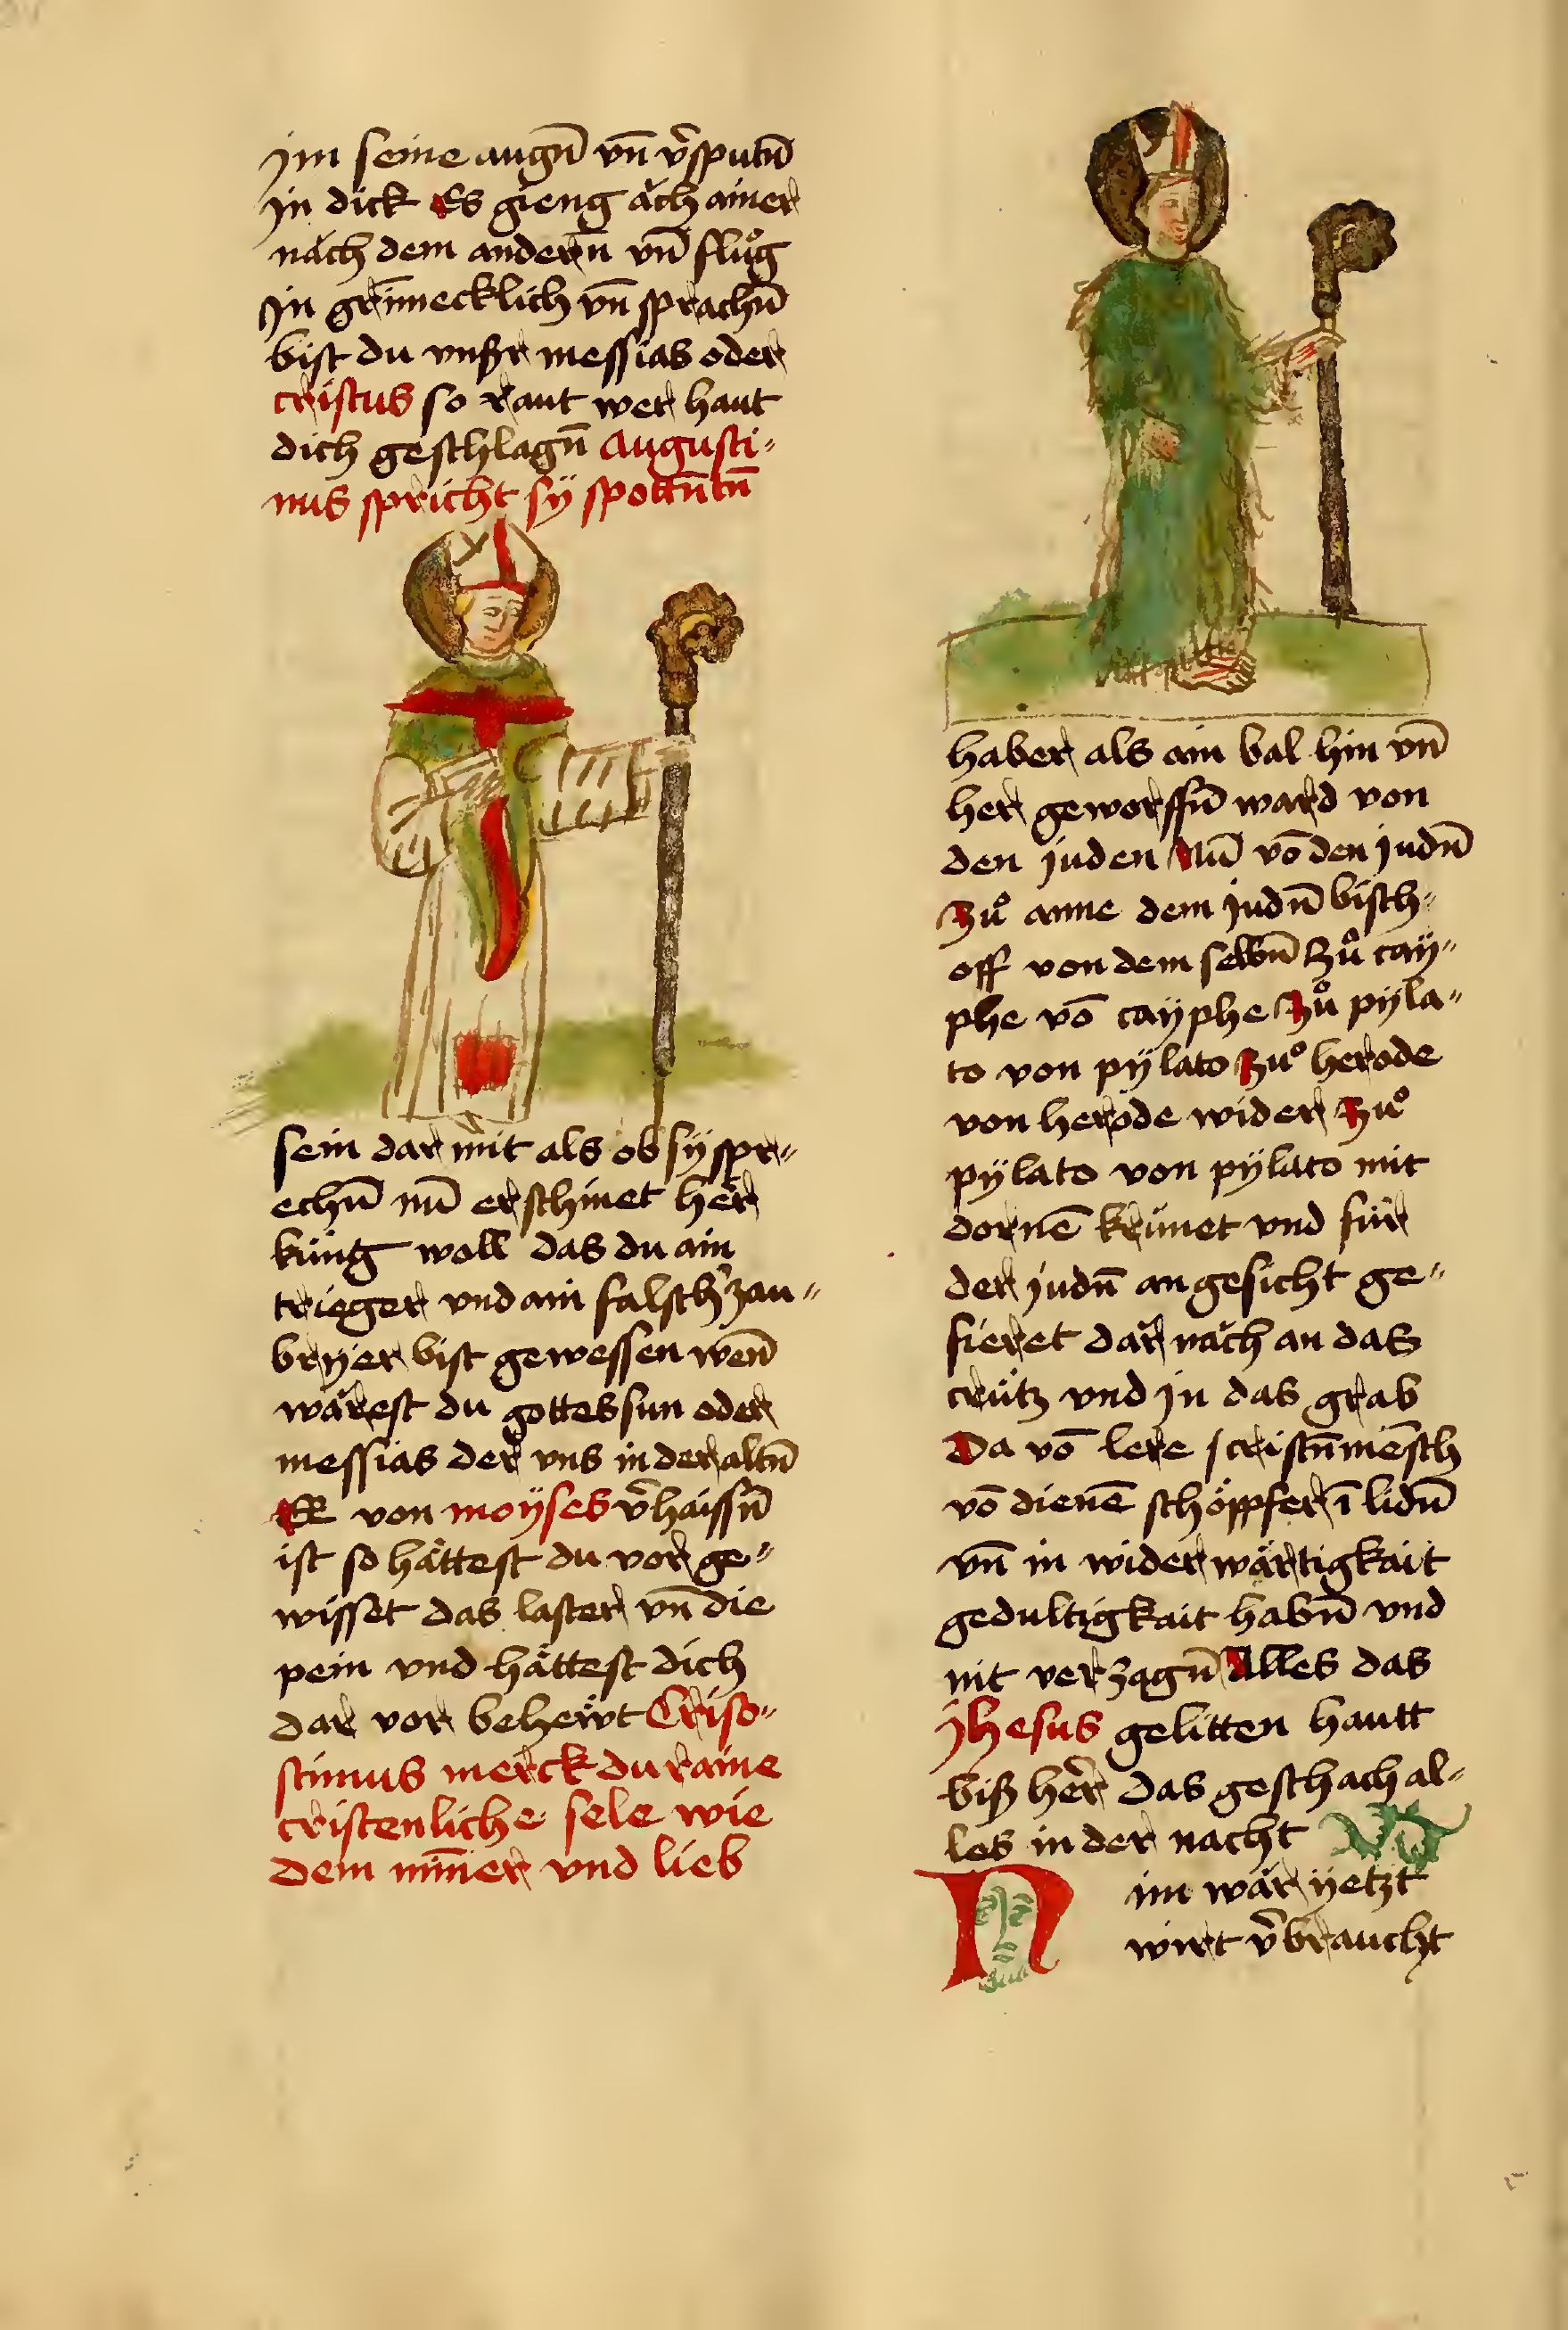 jm seine augn̄ vn̄ v̄sputn̄
jn dick Es gieng ăch ainer
năch dem andern̄ vn̄ slůg
jn grim̄ecklich vn̄ sprachn̄
bist du vnßer messias oder
cristus so raut wer haut
dich geschlagn̄ Augusti-
nus spricht sÿ spottn̄tn̄
sein dar mit als ob sÿ spr-
echn̄ nun̄ erschinet her
küng woll das du ain
trieger vnd ain falsch' zau-
bryer bist gewessen wen̄
wärest du gottes sun oder
messias der vns in der altn̄
EE von moÿses v̄haissn̄
ist so hättest du vor ge-
wisset das laster vn̄ die
pein vnd hättest dich
dar vor behewt Criso-
stimus merck du raine
cristenliche sele wie
dem min̄er vnd lieb
haber als ain bal hin vn̄
her geworffn̄ ward von
den juden Nun̄ vō den judn̄
Zů anne dem judn̄ bisch-
off von dem selbn̄ Zů caÿ-
phe vō caÿphe Zů pÿla-
to von pÿlato Zů herode
von herode wider Zů
pÿlato von pÿlato mit
dornē krünet vnd für
der judn̄ angesicht ge-
fieret dar năch an das
crütz vnd jn das grab
Da vō lere / cristn̄ mēsch
vō dienē schöppfer ī lidn̄
vn̄ in widerwärtigkait
gedultigkait habn̄ vnd
nit verzagn̄ Alles das
jhesus gelitten hautt
biß her das geschach al-
les in der nacht
N im wär ÿetzt
wirt v̄braucht